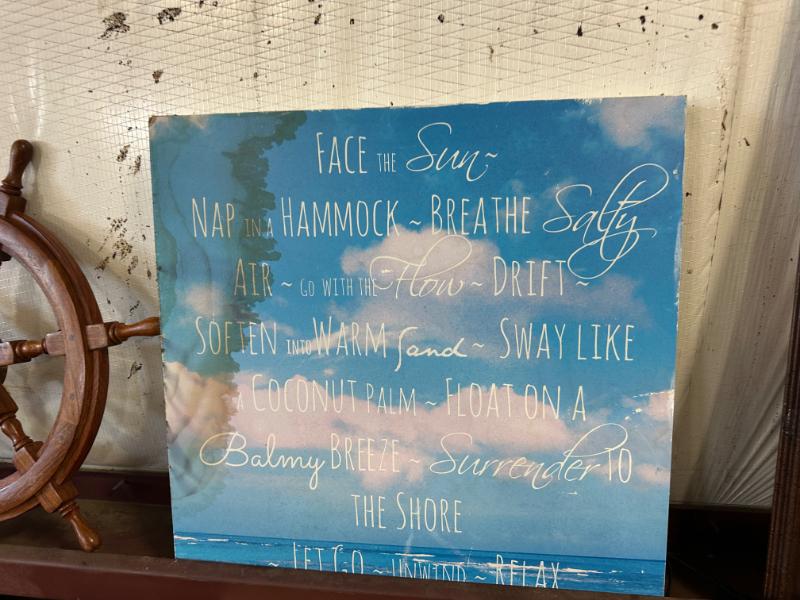 FACE THE Sun~
NAP IN A HAMMOCK ~ BREATHE Salty
AIR ~ GO WITH THE Flow ~ DRIFT ~
SOFTEN INTO WARM Sand ~ SWAY LIKE
A COCONUT PALM ~ FLOAT ON A
Balmy BREEZE ~ Surrender TO
THE SHORE
~ LET GO ~ UNWIND ~ RELAX